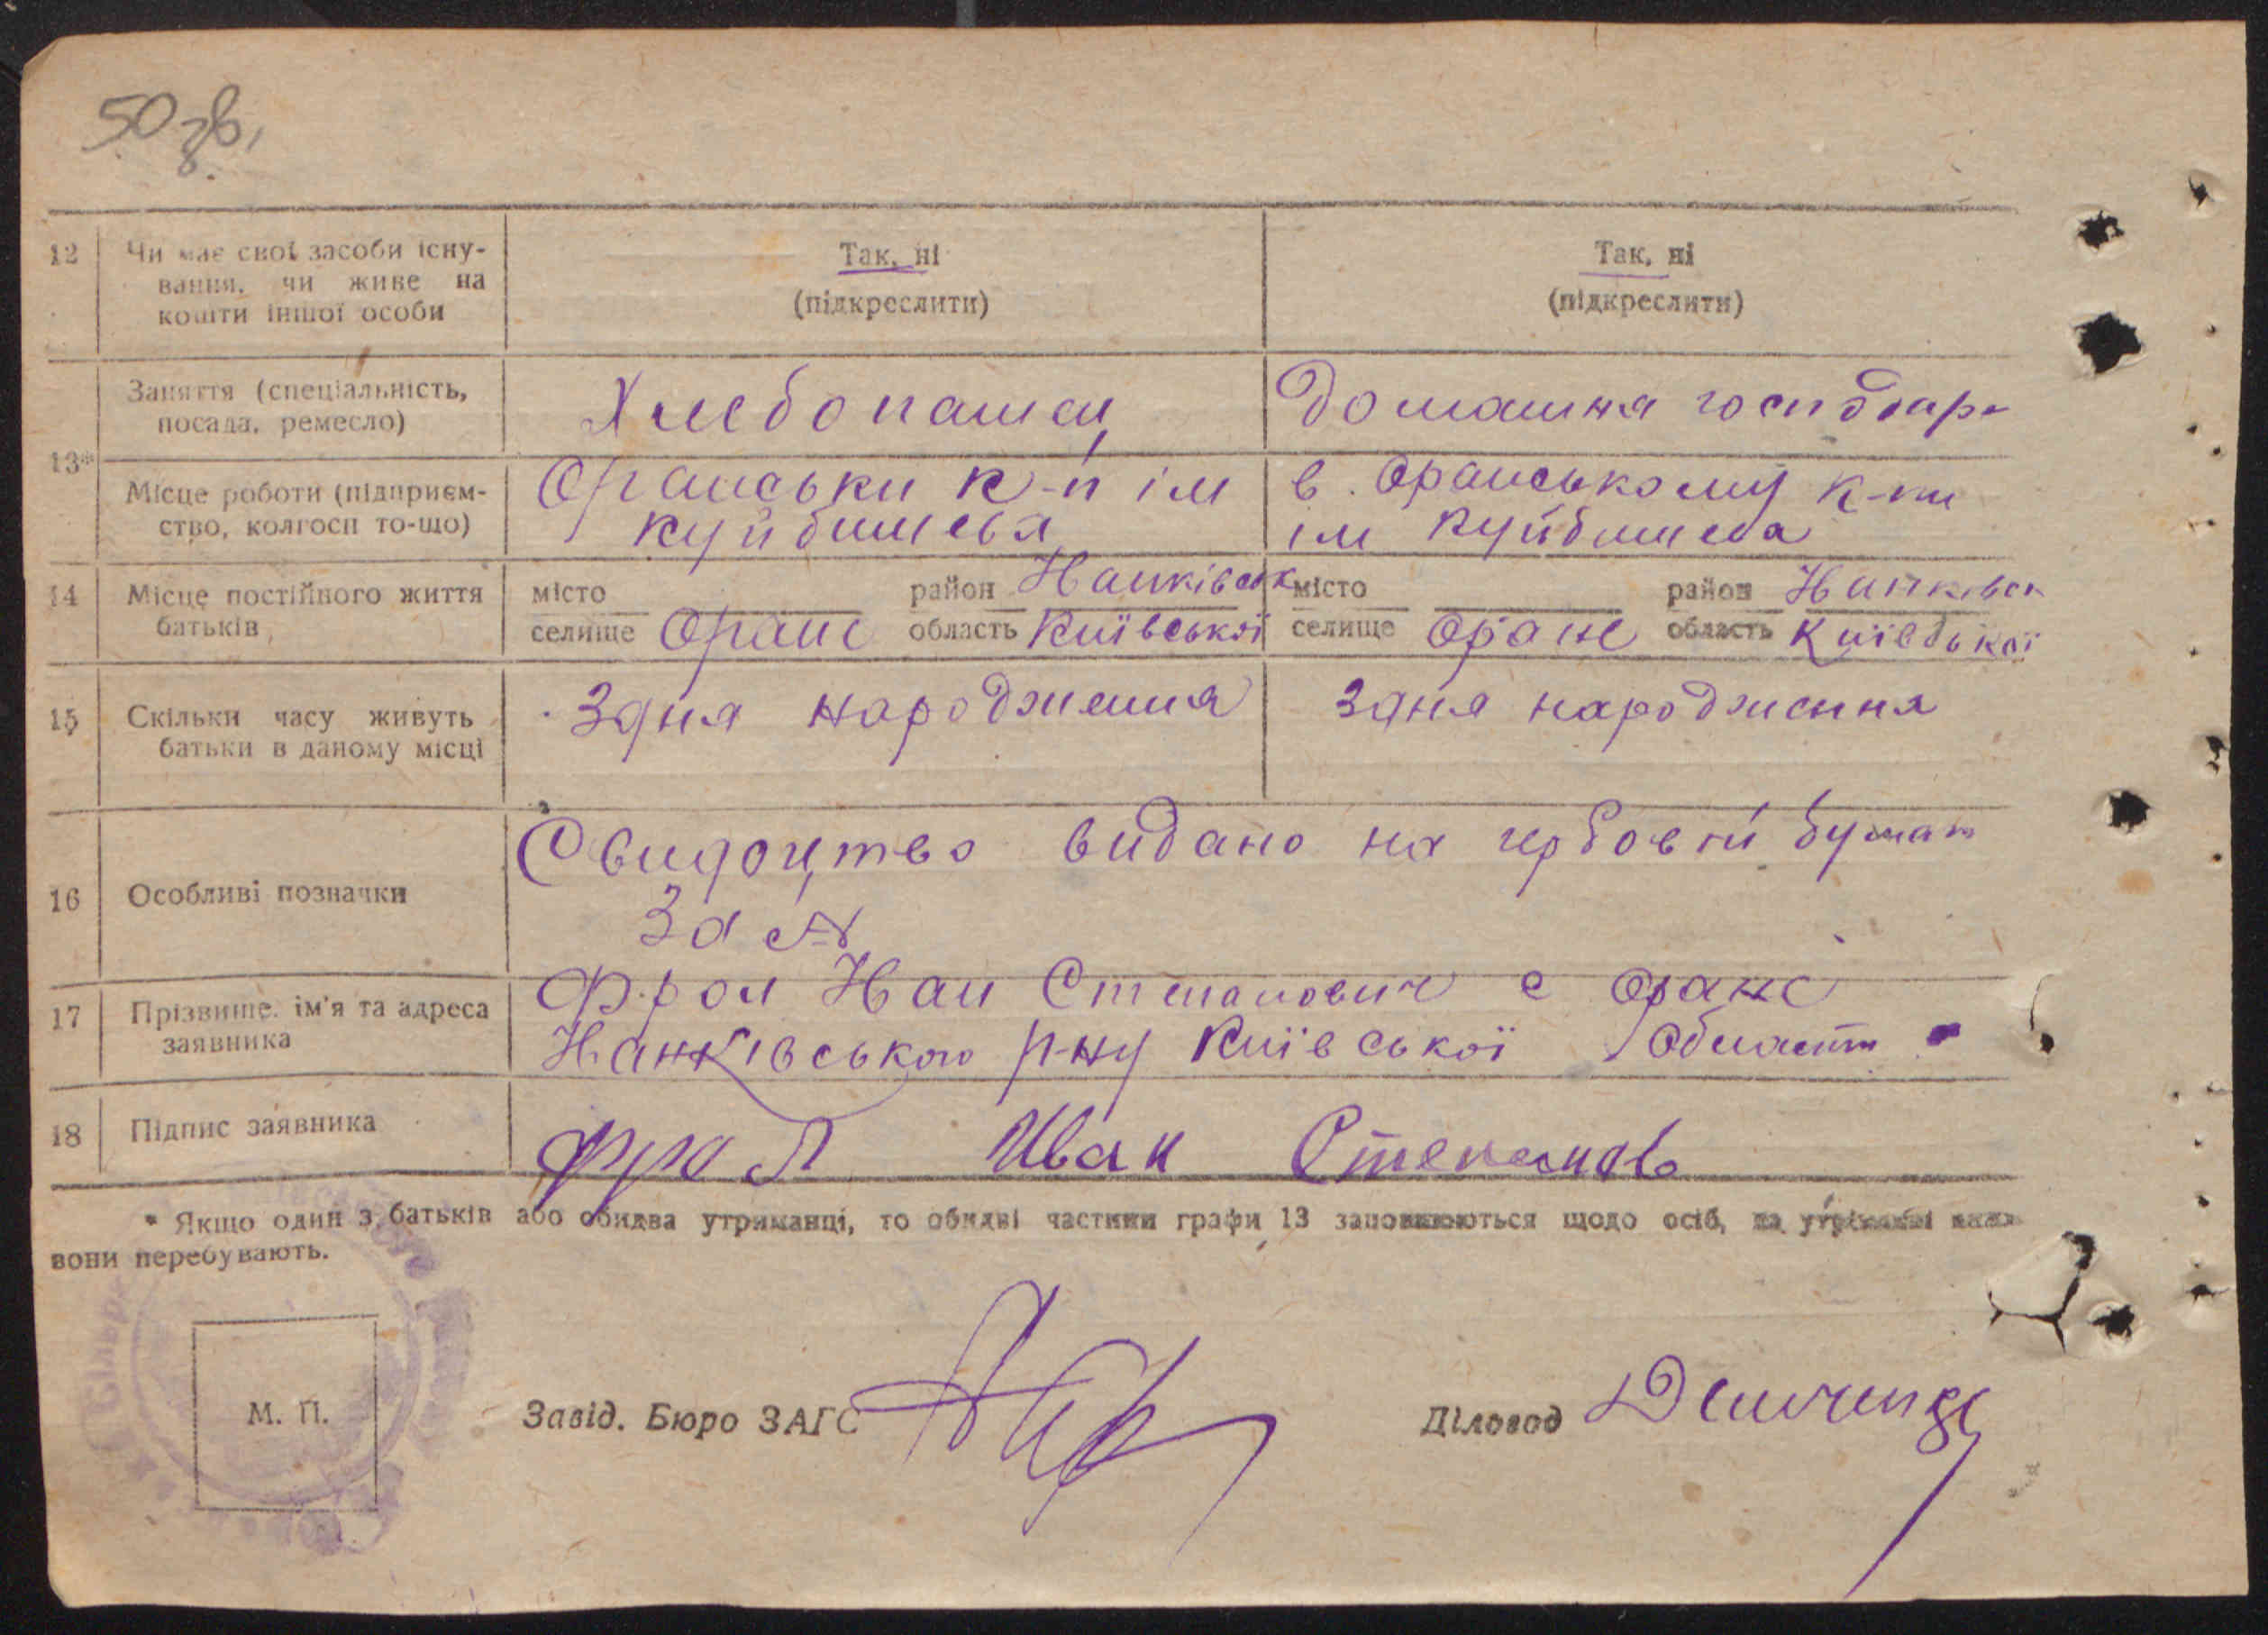 50 зв.
12 Чи має свої засоби існу- Так, ні Так, ні
вання, чи живе на (підкреслити) (підкреслити)
кошти іншої особи
Заняття (спеціальність, Хлебопашец Домашня господар
посада, ремесло)
13*
Місце роботи (підприєм- Оранськи к-п ім в. Оранському к-пи
ство, колгосп то-що) куйбишева ім Куйбишева
14 Місце постійного життя місто район Нанківськ місто район Нанківск
батьків селище Оране область Київської селище Оране область Київської
15 Скільки часу живуть Здня народження Здня народження
батьки в даному місці
Свидоцтво видано на гербовій бумат
16 Особливі позначки
За №
17 Прізвище, ім'я та адреса Фрол Нан Степанович с Оране
заявника Нанківського р-ну Київської Област
18 Підпис заявника Фрол Иван Степанов
* Якщо один з батьків або обидва утриманці, то обидві частини графи 13 заповнюються щодо осіб, на утриманні яких
вони перебувають.
М. П. Завід. Бюро ЗАГС Діловод